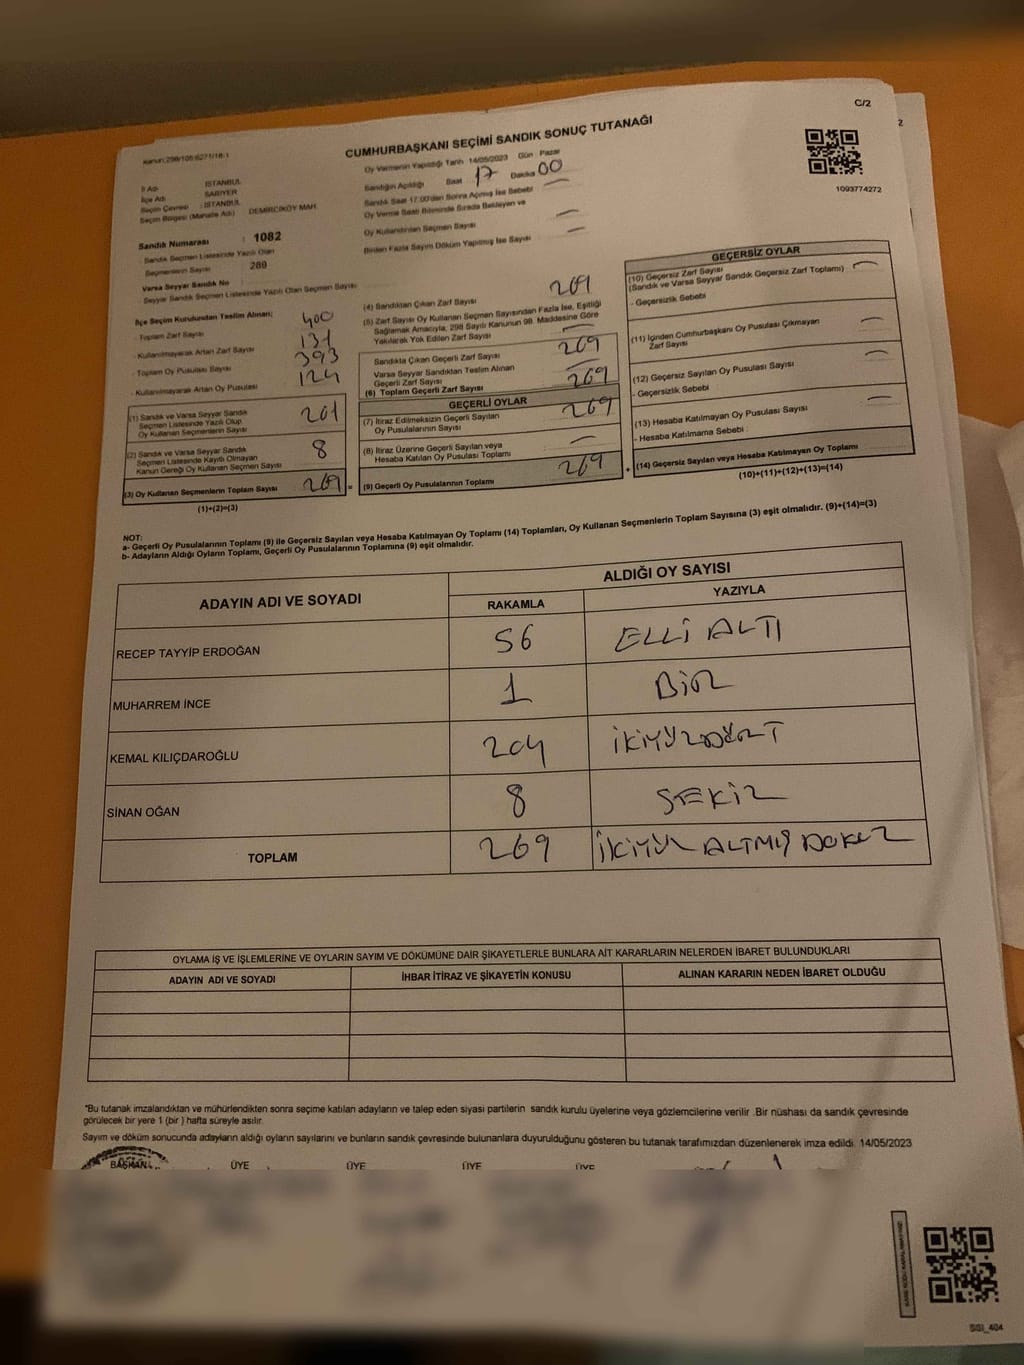 C/2
CUMHURBAŞKANI SEÇİMİ SANDIK SONUÇ TUTANAĞI
Kanun:298/105;6271/18-1
1093774272
İl Adı : İSTANBUL
İlçe Adı : SARIYER
Seçim Çevresi : İSTANBUL
Seçim Bölgesi (Mahalle Adı) : DEMİRCİKÖY MAH.
Sandık Numarası : 1082
Sandık Seçmen Listesinde Yazılı Olan
Seçmenlerin Sayısı : 289
Varsa Seyyar Sandık No :
Seyyar Sandık Seçmen Listesinde Yazılı Olan Seçmen Sayısı :
Oy Vermenin Yapıldığı Tarih 14/05/2023 Gün : Pazar
Sandığın Açıldığı Saat 17 Dakika 00
Sandık Saat 17:00'den Sonra Açılmış İse Sebebi —
Oy Verme Saati Bitiminde Sırada Bekleyen ve
Oy Kullandırılan Seçmen Sayısı —
Birden Fazla Sayım Döküm Yapılmış İse Sayısı —
İlçe Seçim Kurulundan Teslim Alınan;
- Toplam Zarf Sayısı 400
- Kullanılmayarak Artan Zarf Sayısı 131
- Toplam Oy Pusulası Sayısı 393
- Kullanılmayarak Artan Oy Pusulası 124
(1) Sandık ve Varsa Seyyar Sandık
Seçmen Listesinde Yazılı Olup
Oy Kullanan Seçmenlerin Sayısı 261
(2) Sandık ve Varsa Seyyar Sandık
Seçmen Listesinde Kayıtlı Olmayan
Kanun Gereği Oy Kullanan Seçmen Sayısı 8
(3) Oy Kullanan Seçmenlerin Toplam Sayısı 269 =
(1)+(2)=(3)
(4) Sandıktan Çıkan Zarf Sayısı 269
(5) Zarf Sayısı Oy Kullanan Seçmen Sayısından Fazla İse, Eşitliği
Sağlamak Amacıyla, 298 Sayılı Kanunun 98. Maddesine Göre
Yakılarak Yok Edilen Zarf Sayısı —
Sandıkta Çıkan Geçerli Zarf Sayısı 269
Varsa Seyyar Sandıktan Teslim Alınan
Geçerli Zarf Sayısı —
(6) Toplam Geçerli Zarf Sayısı 269
GEÇERLİ OYLAR
(7) İtiraz Edilmeksizin Geçerli Sayılan
Oy Pusulalarının Sayısı 269
(8) İtiraz Üzerine Geçerli Sayılan veya
Hesaba Katılan Oy Pusulası Toplamı —
(9) Geçerli Oy Pusulalarının Toplamı 269 +
GEÇERSİZ OYLAR
(10) Geçersiz Zarf Sayısı —
(Sandık ve Varsa Seyyar Sandık Geçersiz Zarf Toplamı)
- Geçersizlik Sebebi
(11) İçinden Cumhurbaşkanı Oy Pusulası Çıkmayan
Zarf Sayısı —
(12) Geçersiz Sayılan Oy Pusulası Sayısı —
- Geçersizlik Sebebi
(13) Hesaba Katılmayan Oy Pusulası Sayısı —
- Hesaba Katılmama Sebebi :
(14) Geçersiz Sayılan veya Hesaba Katılmayan Oy Toplamı
(10)+(11)+(12)+(13)=(14)
NOT:
a- Geçerli Oy Pusulalarının Toplamı (9) ile Geçersiz Sayılan veya Hesaba Katılmayan Oy Toplamı (14) Toplamları, Oy Kullanan Seçmenlerin Toplam Sayısına (3) eşit olmalıdır. (9)+(14)=(3)
b- Adayların Aldığı Oyların Toplamı, Geçerli Oy Pusulalarının Toplamına (9) eşit olmalıdır.
ADAYIN ADI VE SOYADI ALDIĞI OY SAYISI
RAKAMLA YAZIYLA
RECEP TAYYİP ERDOĞAN 56 ELLİ ALTI
MUHARREM İNCE 1 BİR
KEMAL KILIÇDAROĞLU 204 İKİYÜZDÖRT
SİNAN OĞAN 8 SEKİZ
TOPLAM 269 İKİYÜZ ALTMIŞ DOKUZ
OYLAMA İŞ VE İŞLEMLERİNE VE OYLARIN SAYIM VE DÖKÜMÜNE DAİR ŞİKAYETLERLE BUNLARA AİT KARARLARIN NELERDEN İBARET BULUNDUKLARI
ADAYIN ADI VE SOYADI İHBAR İTİRAZ VE ŞİKAYETİN KONUSU ALINAN KARARIN NEDEN İBARET OLDUĞU
*Bu tutanak imzalandıktan ve mühürlendikten sonra seçime katılan adayların ve talep eden siyasi partilerin sandık kurulu üyelerine veya gözlemcilerine verilir .Bir nüshası da sandık çevresinde
görülecek bir yere 1 (bir ) hafta süreyle asılır.
Sayım ve döküm sonucunda adayların aldığı oyların sayılarını ve bunların sandık çevresinde bulunanlara duyurulduğunu gösteren bu tutanak tarafımızdan düzenlenerek imza edildi. 14/05/2023
BAŞKAN ÜYE ÜYE ÜYE ÜYE